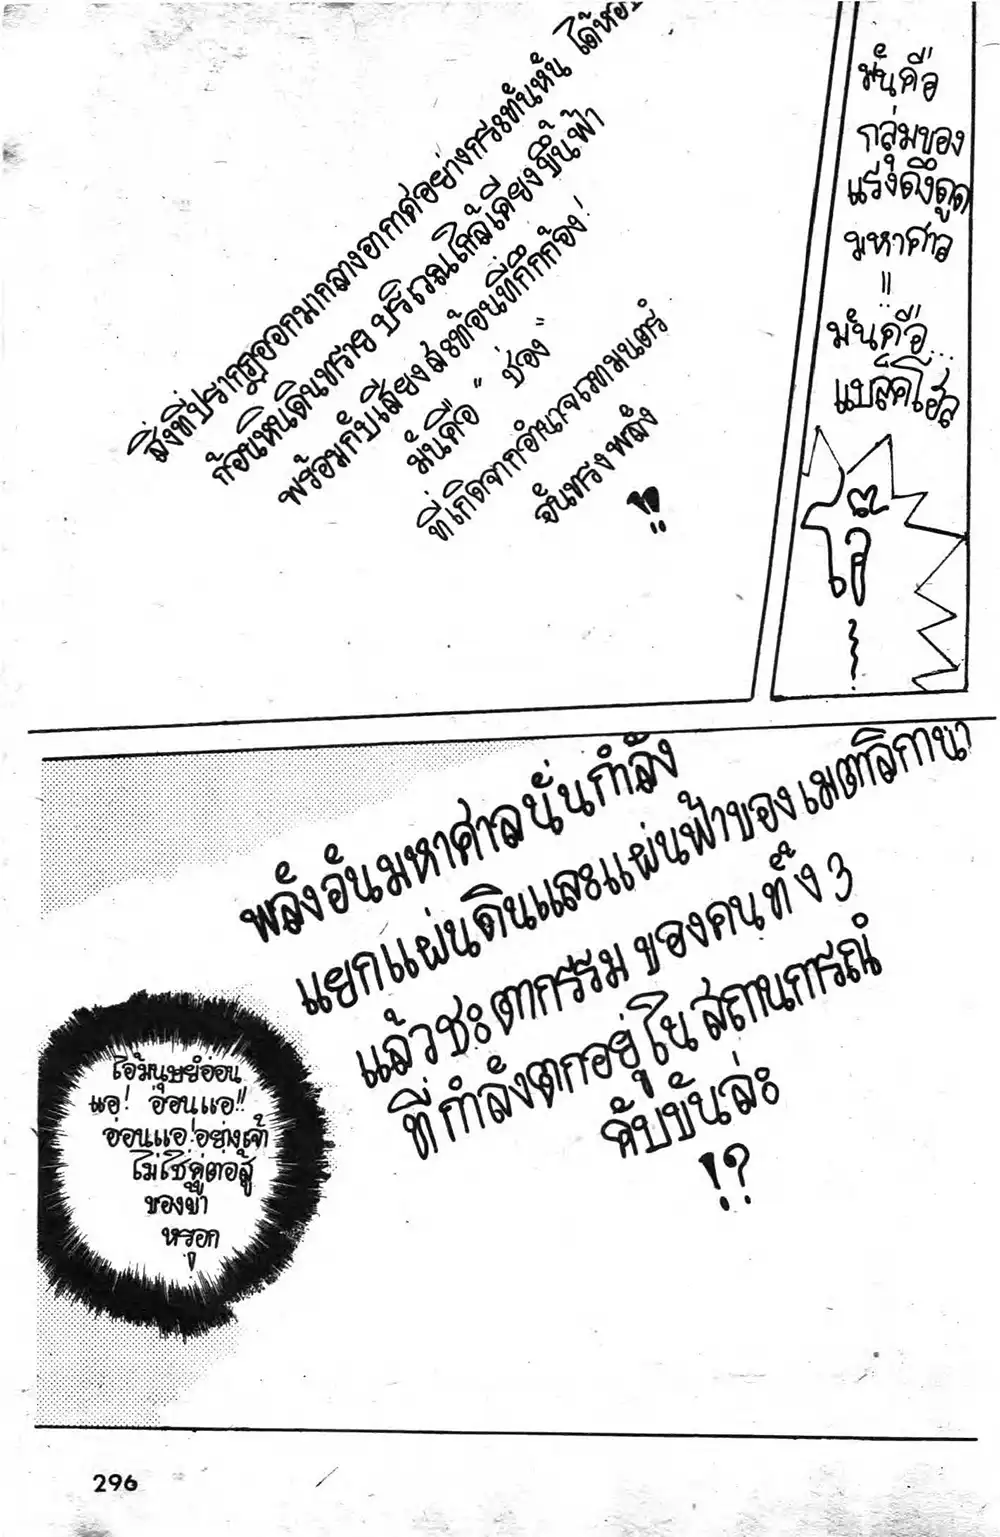 สิ่งที่ปรากฏออกมากลางอากาศอย่างกระทันหัน ได้หอบ
ก้อนหินดินทราย บริเวณใกล้เคียงขึ้นฟ้า
พร้อมกับเสียงสะท้อนที่กึกก้อง!
มันคือ "ช่อง"
ที่เกิดจากอำนาจเวทมนตร์
อันทรงพลัง
!!
มันคือ
กลุ่มของ
แรงดึงดูด
มหาศาล
!!
มันคือ...
แบล็คโฮล
โอ๊
พลังอันมหาศาลนั่นกำลัง
แยกแผ่นดินและแผ่นฟ้าของเมตาลิกานา
แล้วชะตากรรม ของคนทั้ง 3
ที่กำลังตกอยู่ใน สถานการณ์
คับขันล่ะ
!?
ไอ้มนุษย์อ่อน
แอ! อ่อนแอ!!
อ่อนแอ!อย่างเจ้า
ไม่ใช่คู่ต่อสู้
ของข้า
หรอก
!
296